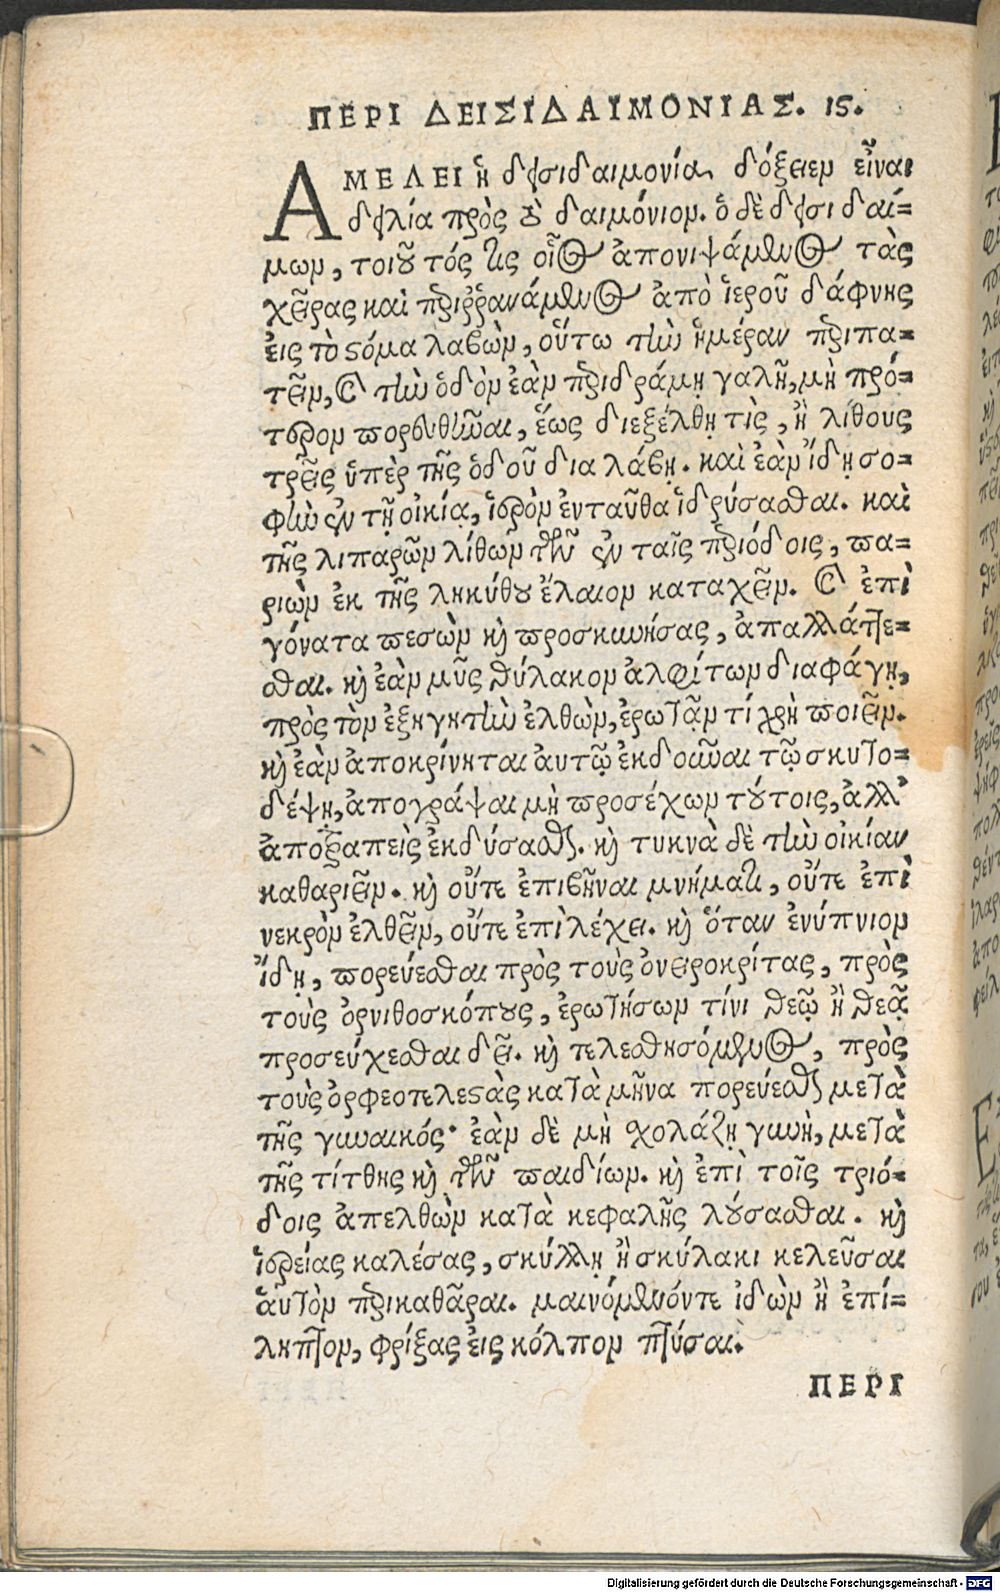 ΠΕΡΙ ΔΕΙΣΙΔΑΙΜΟΝΙΑΣ. 15.
ΑΜΕΛΕΙ ἡ δεισιδαιμονία, δόξειεν εἶναι
δειλία πρὸς τὸ δαιμόνιον. ὁ δὲ δεισιδαί=
μων, τοιοῦτός τις οἷος ἀπονιψάμενος τὰς
χεῖρας καὶ περιῤῥανάμενος ἀπὸ ἱεροῦ δάφνης
εἰς τὸ στόμα λαβὼν, οὕτω τὴν ἡμέραν περιπα=
τεῖν, καὶ τὴν ὁδὸν ἐὰν περιδράμῃ γαλῆ, μὴ πρό=
τερον πορευθῆναι, ἕως διεξέλθῃ τὶς, ἢ λίθους
τρεῖς ὑπὲρ τῆς ὁδοῦ διαλάβῃ. καὶ ἐὰν ἴδῃ σο=
φὴν ἐν τῇ οἰκίᾳ, ἱερὸν ἐνταῦθα ἱδρύσασθαι. καὶ
τῆς λιπαρῶν λίθων τῶν ἐν ταῖς περιόδοις, πα=
ριὼν ἐκ τῆς ληκύθου ἔλαιον καταχεῖν. καὶ ἐπὶ
γόνατα πεσὼν καὶ προσκυνήσας, ἀπαλλάττε=
σθαι. καὶ ἐὰν μῦς θύλακον ἀλφίτων διαφάγῃ,
πρὸς τὸν ἐξηγητὴν ἐλθὼν, ἐρωτᾷν τί χρὴ ποιεῖν.
καὶ ἐὰν ἀποκρίνηται ἀυτῷ ἐκδοῦναι τῷ σκυτο=
δέψῃ, ἀπογράψαι μὴ προσέχων τούτοις, ἀλλ'
ἀποτραπεὶς ἐκδύσασθαι. καὶ τυκνὰ δὲ τὴν οἰκίαν
καθαριεῖν. καὶ οὔτε ἐπιβῆναι μνήματι, οὔτε ἐπὶ
νεκρὸν ἐλθεῖν, οὔτε ἐπὶ λέχει. καὶ ὅταν ἐνύπνιον
ἴδῃ, πορεύεσθαι πρὸς τοὺς ὀνειροκρίτας, πρὸς
τοὺς ὀρνιθοσκόπους, ἐρωτήσων τίνι θεῷ ἢ θεᾷ
προσεύχεσθαι δεῖ. καὶ τελεσθησόμενος, πρὸς
τοὺς ὀρφεοτελεστὰς κατὰ μῆνα πορεύεσθαι μετὰ
τῆς γυναικός· ἐὰν δὲ μὴ σχολάζῃ γυνὴ, μετὰ
τῆς τίτθης καὶ τῶν παιδίων. καὶ ἐπὶ τοῖς τριό=
δοις ἀπελθὼν κατὰ κεφαλῆς λούσασθαι. καὶ
ἱερείας καλέσας, σκύλλῃ ἢ σκύλακι κελεῦσαι
ἁυτὸν περικαθᾶραι. μαινόμενόντε ἰδὼν ἢ ἐπί=
ληπτον, φρίξας εἰς κόλπον πτύσαι.
ΠΕΡΙ
Digitalisierung gefördert durch die Deutsche Forschungsgemeinschaft - DFG